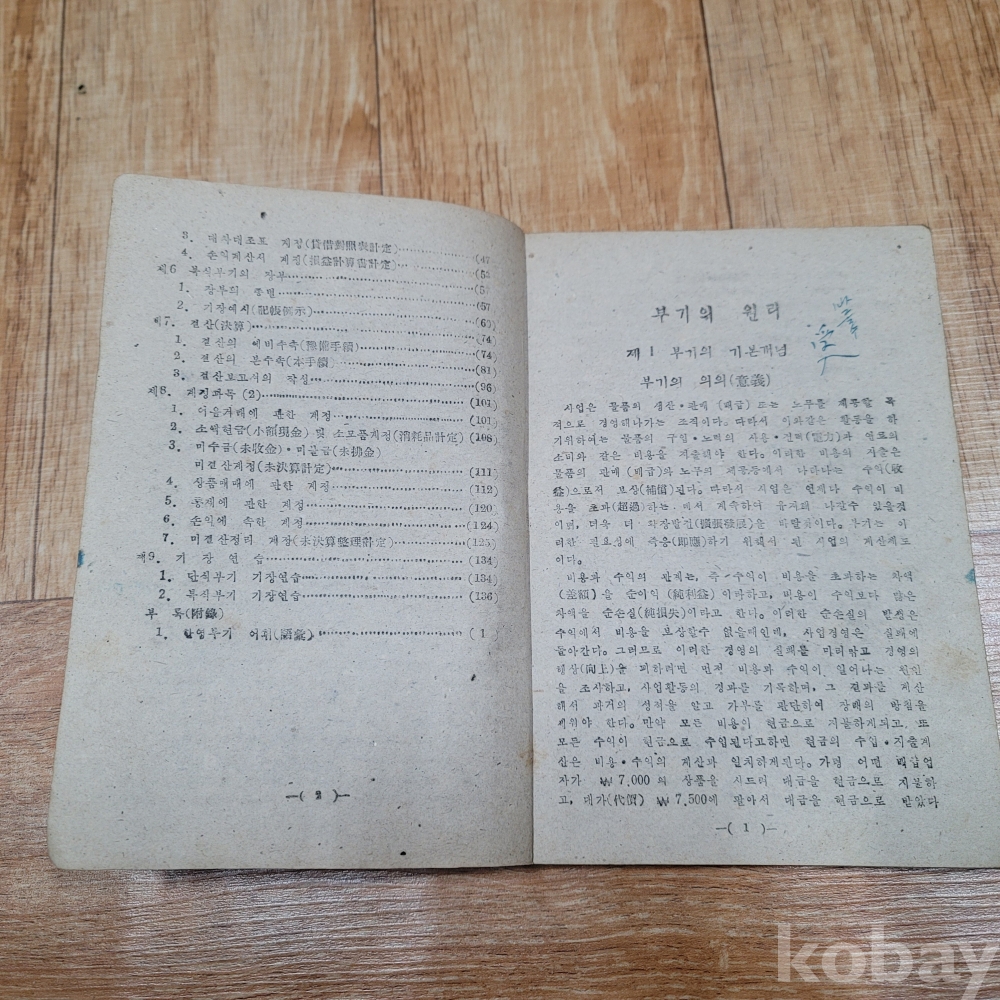 3. 대차대조표 계정(貸借對照表計定)(47
4. 손익계산서 계정(損益計算書計定)(52
제6 복식부기의 장부(5
1. 장부의 종별(57
2. 기장예시(記帳例示)(6
제7. 결산(決算)(74)
1. 결산의 예비수속(豫備手續)(74)
2. 결산의 본수속(本手續)(81)
3. 결산보고서의 작성(96)
제8. 계정과목 (2)(101)
1. 어음거래에 관한 계정(101)
2. 소액현금(小額現金) 및 소모품계정(消耗品計定)(106)
3. 미수금(未收金)·미불금(未拂金)
미결산계정(未決算計定)(111)
4. 상품매매에 관한 계정(112)
5. 통제에 관한 계정(120)
6. 손익에 속한 계정(124)
7. 미결산정리 계정(未決算整理計定)(125)
제9. 기 장 연 습(134)
1. 단식부기 기장연습(134)
2. 복식부기 기장연습(136)
부 록(附錄)
1. 한영부기 어휘(語彙)( 1
—( 2 )—
부기의 원리
제 1 부기의 기본개념
부기의 의의(意義)
사업은 물품의 생산·판매 (배급) 또는 노무를 제공할 목
적으로 경영해나가는 조직이다. 따라서 이와같은 활동을 하
기위하여는 물품의 구입·노력의 사용·전력(電力)과 연료의
소비와 같은 비용을 지출해야 한다. 이러한 비용의 지출은
물품의 판매 (배급)와 노무의 제공등에서 나타나는 수익(收
益)으로서 보상(補償)된다. 따라서 사업은 언제나 수익이 비
용을 초과(超過)하는 데서 계속하여 유지해 나갈수 있을것
이며, 더욱 더 확장발전(擴張發展)을 바랄것이다. 부기는 이
러한 필요성에 즉응(即應)하기 위해서 된 사업의 계산제도
이다.
비용과 수익의 관계는, 즉 수익이 비용을 초과하는 차액
(差額)을 순이익 (純利益)이라하고, 비용이 수익보다 많은
차액을 순손실(純損失)이라고 한다. 이러한 순손실의 발생은
수익에서 비용을 보상할수 없을때인데, 사업경영은 실패에
돌아간다. 그러므로 이러한 경영의 실패를 미리막고 경영의
향상(向上)을 꾀하려면 먼저 비용과 수익이 일어나는 원인
을 조사하고, 사업활동의 경과를 기록하며, 그 결과를 계산
해서 과거의 성적을 알고 가부를 판단하여 장래의 방침을
세워야 한다. 만약 모든 비용이 현금으로 지불하게되고, 또
모든 수익이 현금으로 수입된다고하면 현금의 수입·지출계
산은 비용·수익의 계산과 일치하게된다. 가령 어떤 배급업
자가 ₩7,000 의 상품을 사드려 대금을 현금으로 지불하
고, 대가(代價) ₩7,500에 팔아서 대금을 현금으로 받았다
—( 1 )—
kobay